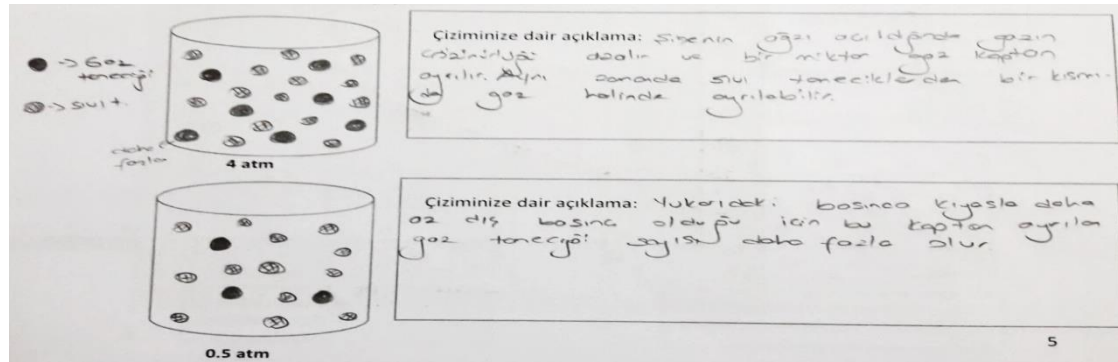 → Gaz
taneciği
→ sıvı t.
daha
fazla
4 atm
Çiziminize dair açıklama: Şişenin ağzı açıldığında gazın
çözünürlüğü azalır ve bir miktar gaz kaptan
ayrılır. Aynı zamanda sıvı taneciklerden bir kısmı
da gaz halinde ayrılabilir.
0.5 atm
Çiziminize dair açıklama: Yukarıdaki basınca kıyasla daha
az dış basınç olduğu için bu kaptan ayrılan
gaz taneciği sayısı daha fazla olur.
5